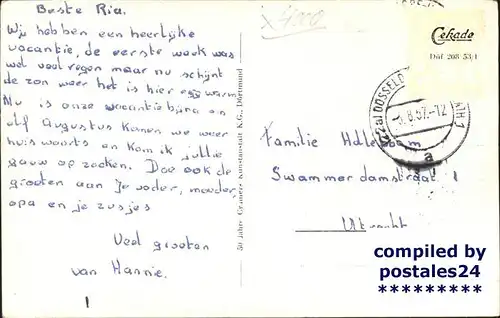 Beste Ria.
Wij hebben een heerlijke
vacantie, de eerste week was
wel veel regen maar nu schijnt
de zon weer het is hier erg warm
Nu is onze vacantie bijna en
elf Augustus komen we weer
huiswaarts en kom ik jullie
gauw op zoeken. Doe ook de
groeten aan je vader, moeder,
opa en je zusjes
Veel groeten
van Hannie.
x4000
50 Jahre Cramers Kunstanstalt K.G., Dortmund
Cekade
Düf 208 53/1
(22a) DÜSSELD
-5.8.57.-12
a
Familie
Swammerdamstraat 1
Utrecht
compiled by
postales24
*********